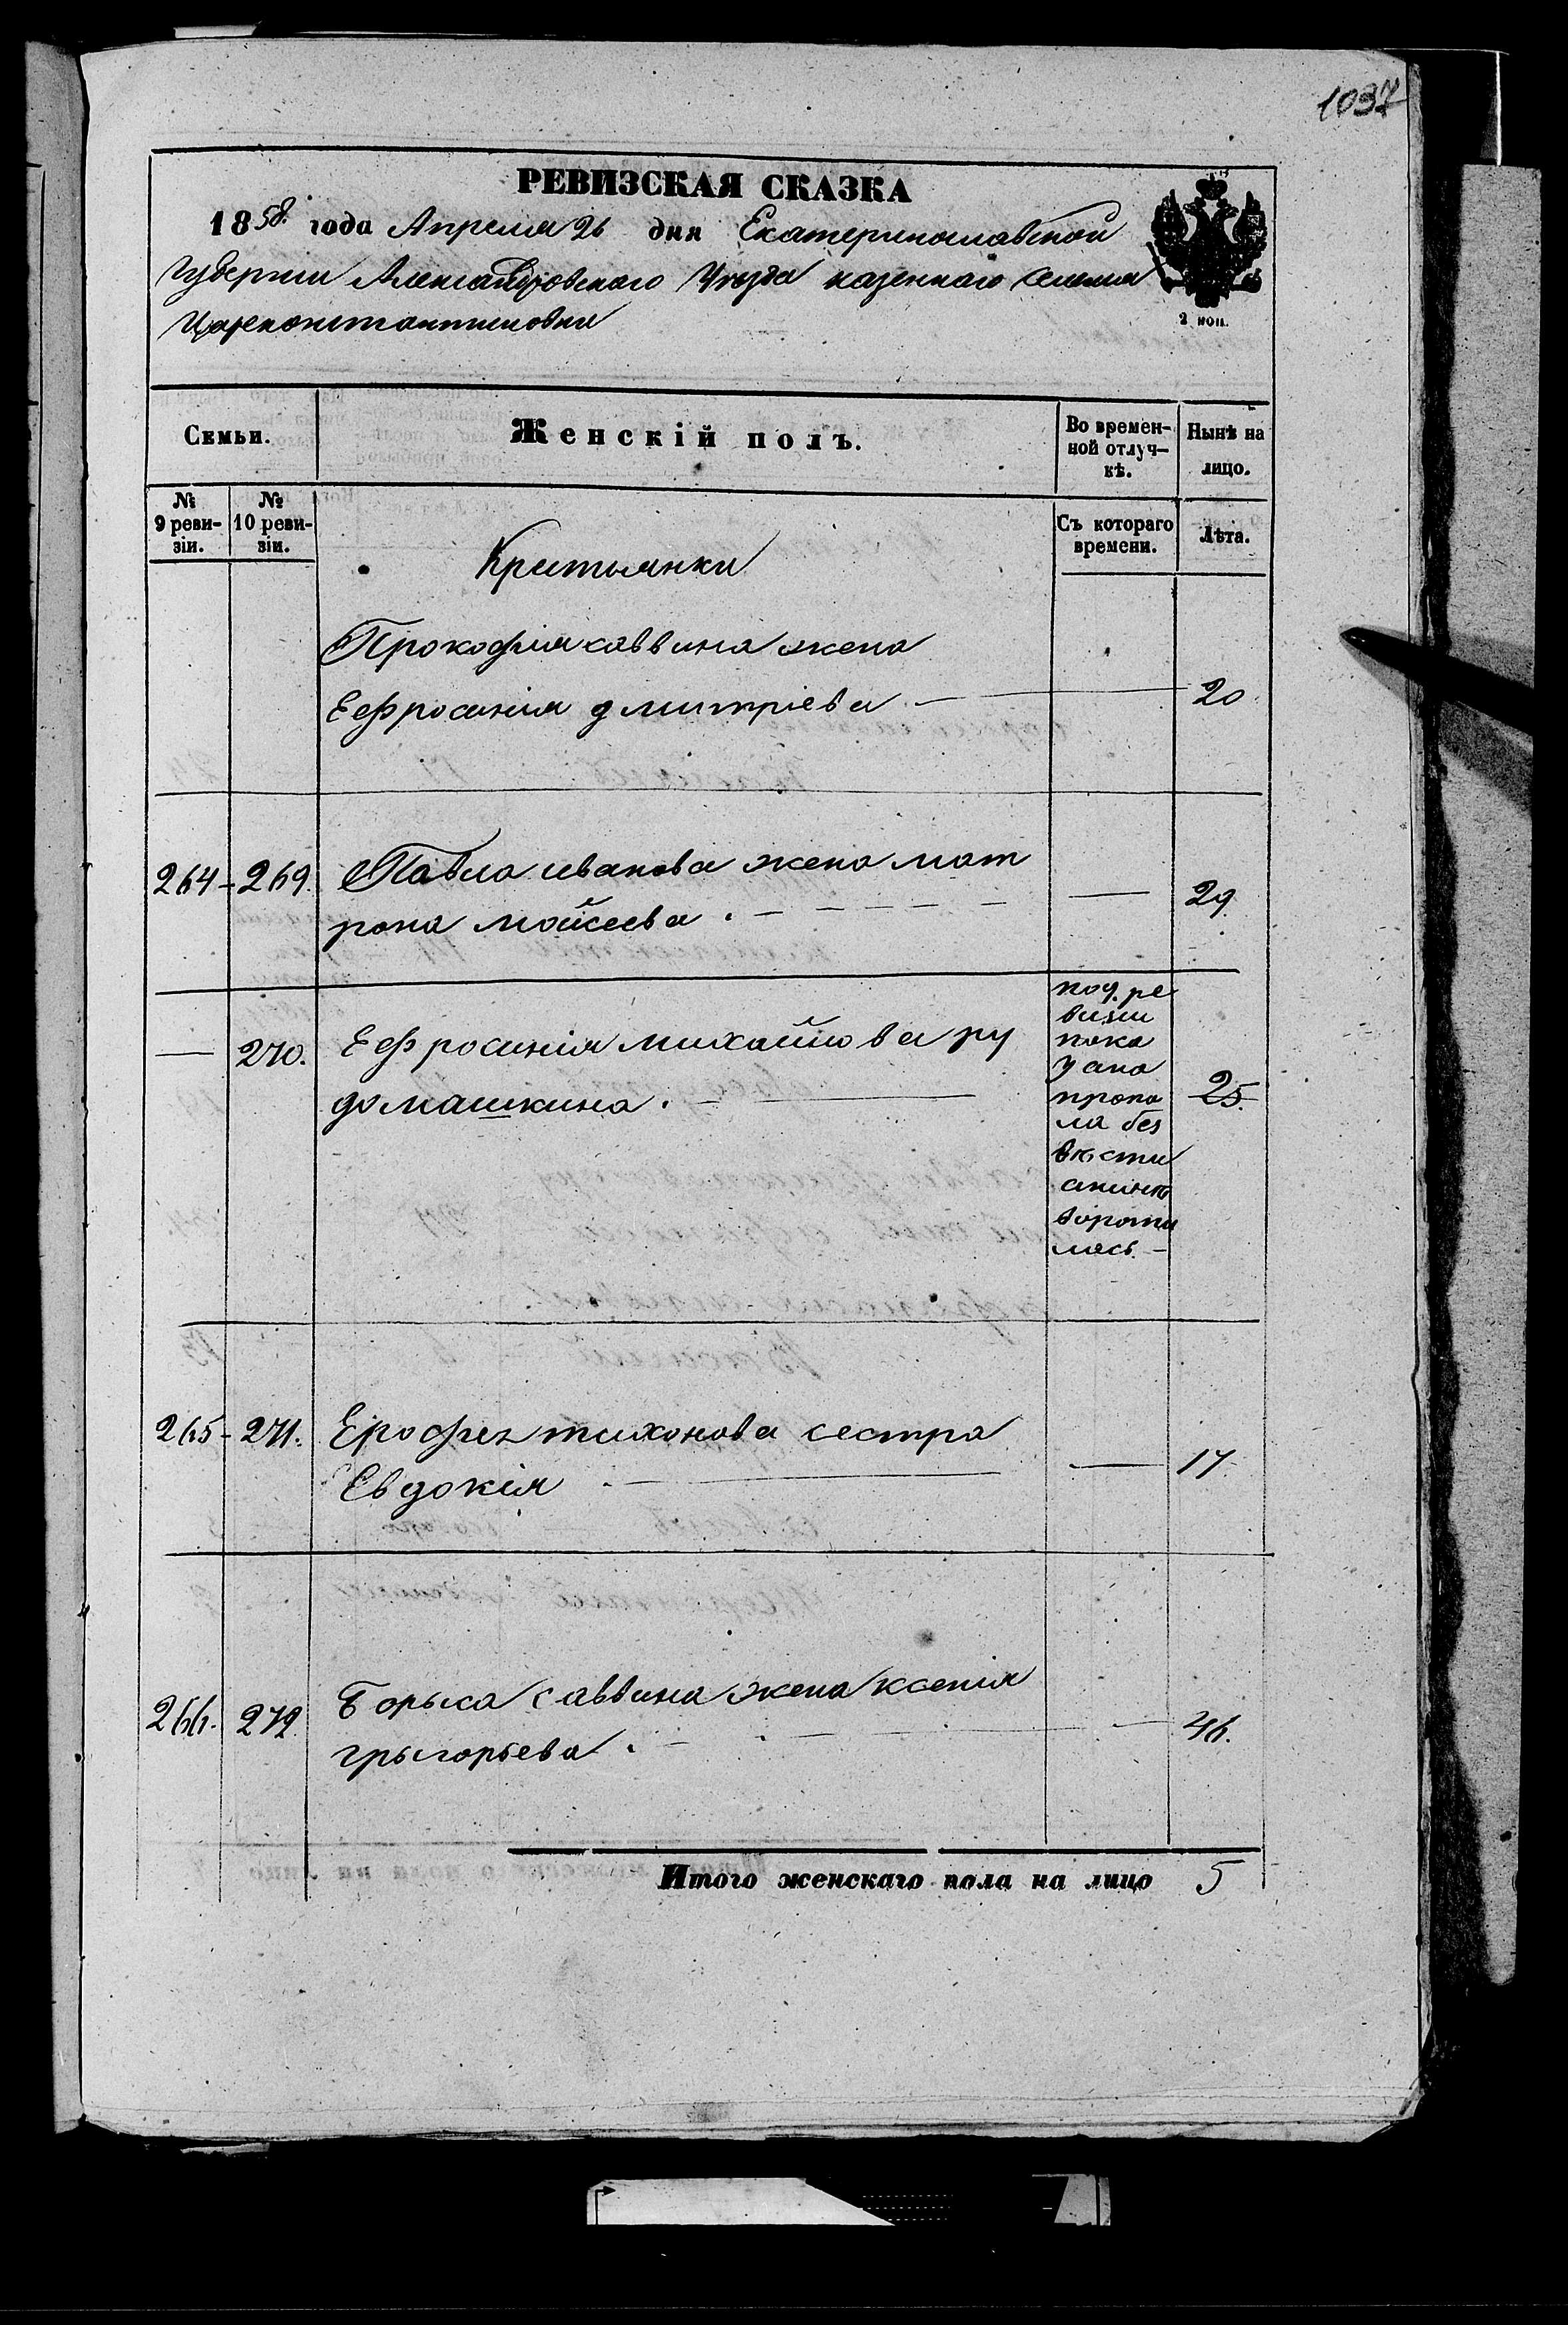 1037
РЕВИЗСКАЯ СКАЗКА
1858. года Апреля 26 дня Екатеринославской
Губернiи Александровскаго Уезда казеннаго селенiя
Цареконстантиновки
2 коп.
Семьи.
Женскiй полъ.
Во времен-
ной отлуч-
кѣ.
Нынѣ на
лицо.
№
9 реви-
зiи.
№
10 реви-
зiи.
Съ котораго
времени.
Лѣта.
Крестьянки
Прокофiя саввина жена
Ефросинiя дмитрiева — 20
264 - 269. Павла иванова жена мат
рона мойсеева . — — 29.
— 270. Ефросинiя михайлова ру
домашкина . — 25.
по 9. ре
визiи
пока
зана
пропа
ла без
вѣсти
вороти
лась. —
265 - 271. Ерофея тихонова сестра
Евдокiя . — — 17.
266. 272. Борыса саввина жена ксенiя
грыгорьева . — — 46.
Итого женскаго пола на лицо 5